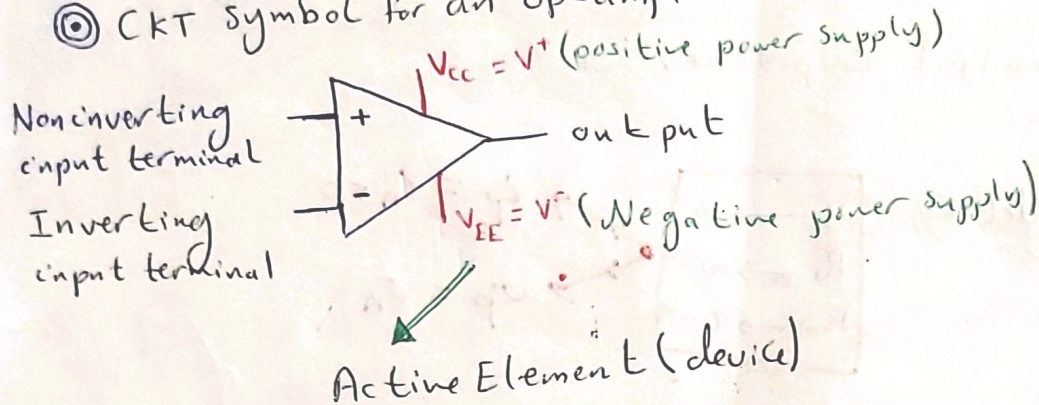 CKT Symbol for an op-amp.
Vcc = V⁺ (positive power supply)
Noninverting
input terminal
+
output
-
Inverting
input terminal
VEE = V⁻ (Negative power supply)
Active Element (device)